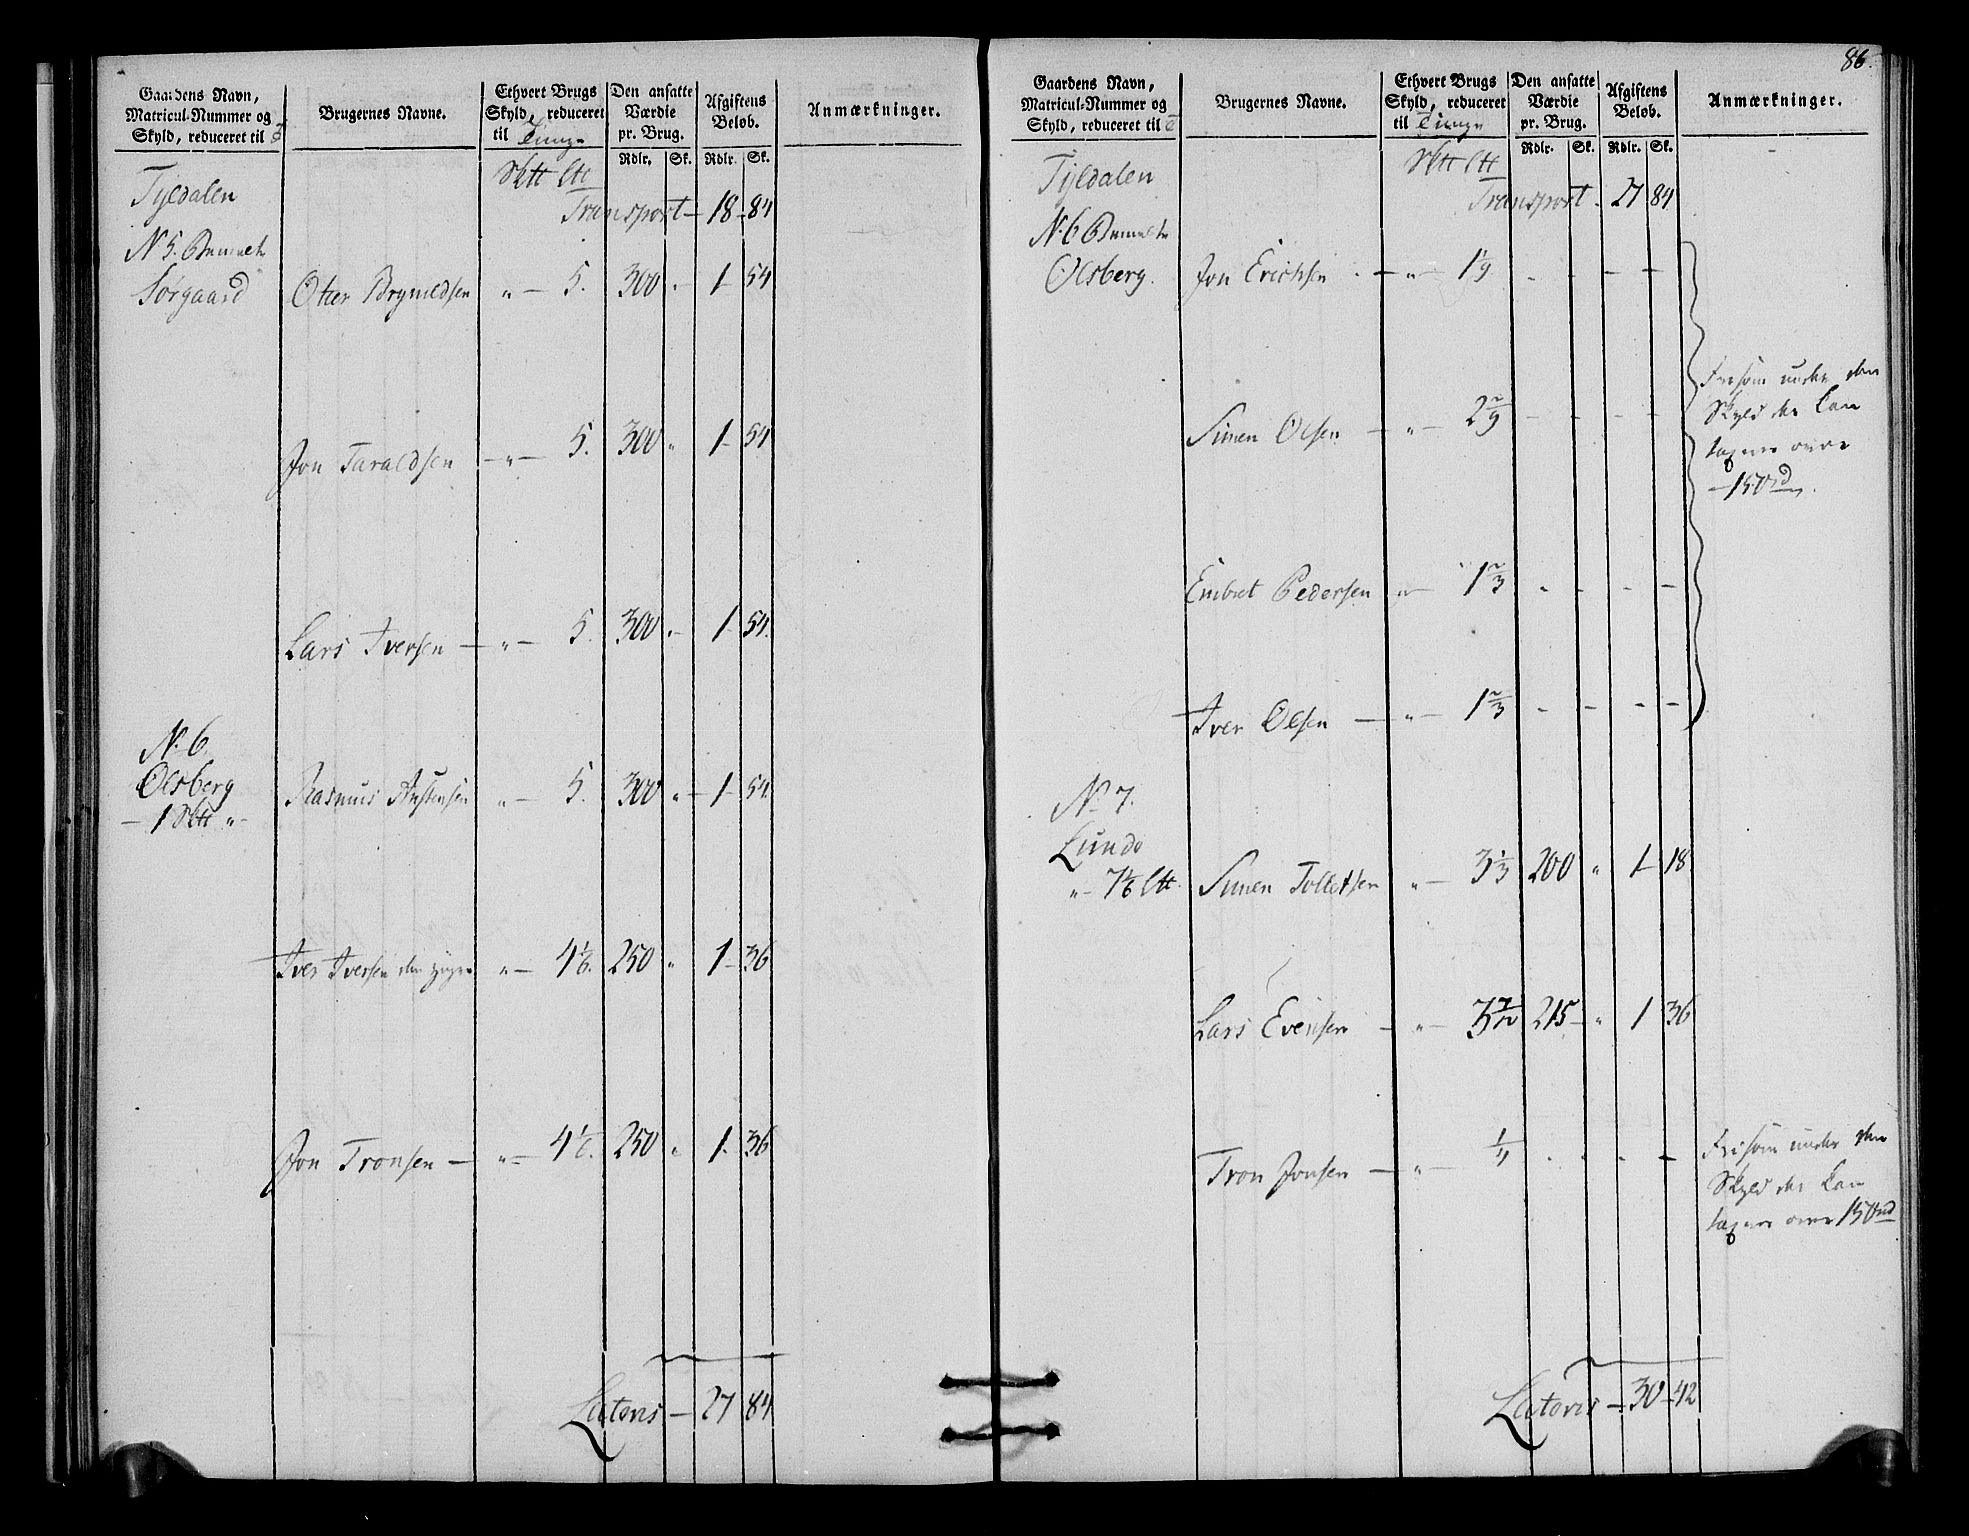 Gaardens Navn,
Matricul-Nummer og
Skyld, reduceret til
Brugernes Navne.
Ethvert Brugs
Skyld, reduceret
til Tunge
Den ansatte
Værdie
pr. Brug.
Rdlr. Sk.
Afgiftens
Beløb.
Rdlr. Sk.
Anmærkninger.
Tyldalen
Transport – 18 – 84
N 5. Bemelte
Sørgaard Otter Brynildsen „ – 5. 300 „ 1 – 54
Jon Taraldsen – „ – 5. 300 „ 1 – 54
Lars Iversen – „ – 5. 300 „ 1 – 54.
N. 6.
Olsberg Rasmus Anstensen „ – 5. 300 „ – 1 – 54.
– 1 „ –
Iver Iversen den yngre „ – 4 1/6. 250 „ 1 – 36
Jon Tronsen – „ – 4 1/6. 250 „ 1. 36
Lateris – 27 84
86.
Gaardens Navn,
Matricul-Nummer og
Skyld, reduceret til
Brugernes Navne.
Ethvert Brugs
Skyld, reduceret
til Tunge
Den ansatte
Værdie
pr. Brug.
Rdlr. Sk.
Afgiftens
Beløb.
Rdlr. Sk.
Anmærkninger.
Tyldalen
Transport – 27 84
N. 6 Bemelte
Olsberg. Jon Erichsen – „ – 1 1/9 – – – –
Simen Olsen – „ – 2 2/9 – – – –
Fri som under den
Skyld der kan
taxeres over
– 150 rd.
Embret Pedersen „ – 1 2/3 – – – –
Iver Olsen – „ – 1 2/3 – – – –
N. 7.
Lunde
„ – 7 1/6 Simen Tolletsen „ – 3 1/3 200 „ 1 – 18
Lars Evensen – „ – 3 7/12 215 – „ 1 36
Tron Jonsen – „ – 1/4 – – – –
Fri som under den
Skyld der kan
taxeres over 150 rd
Lateris – 30 – 42